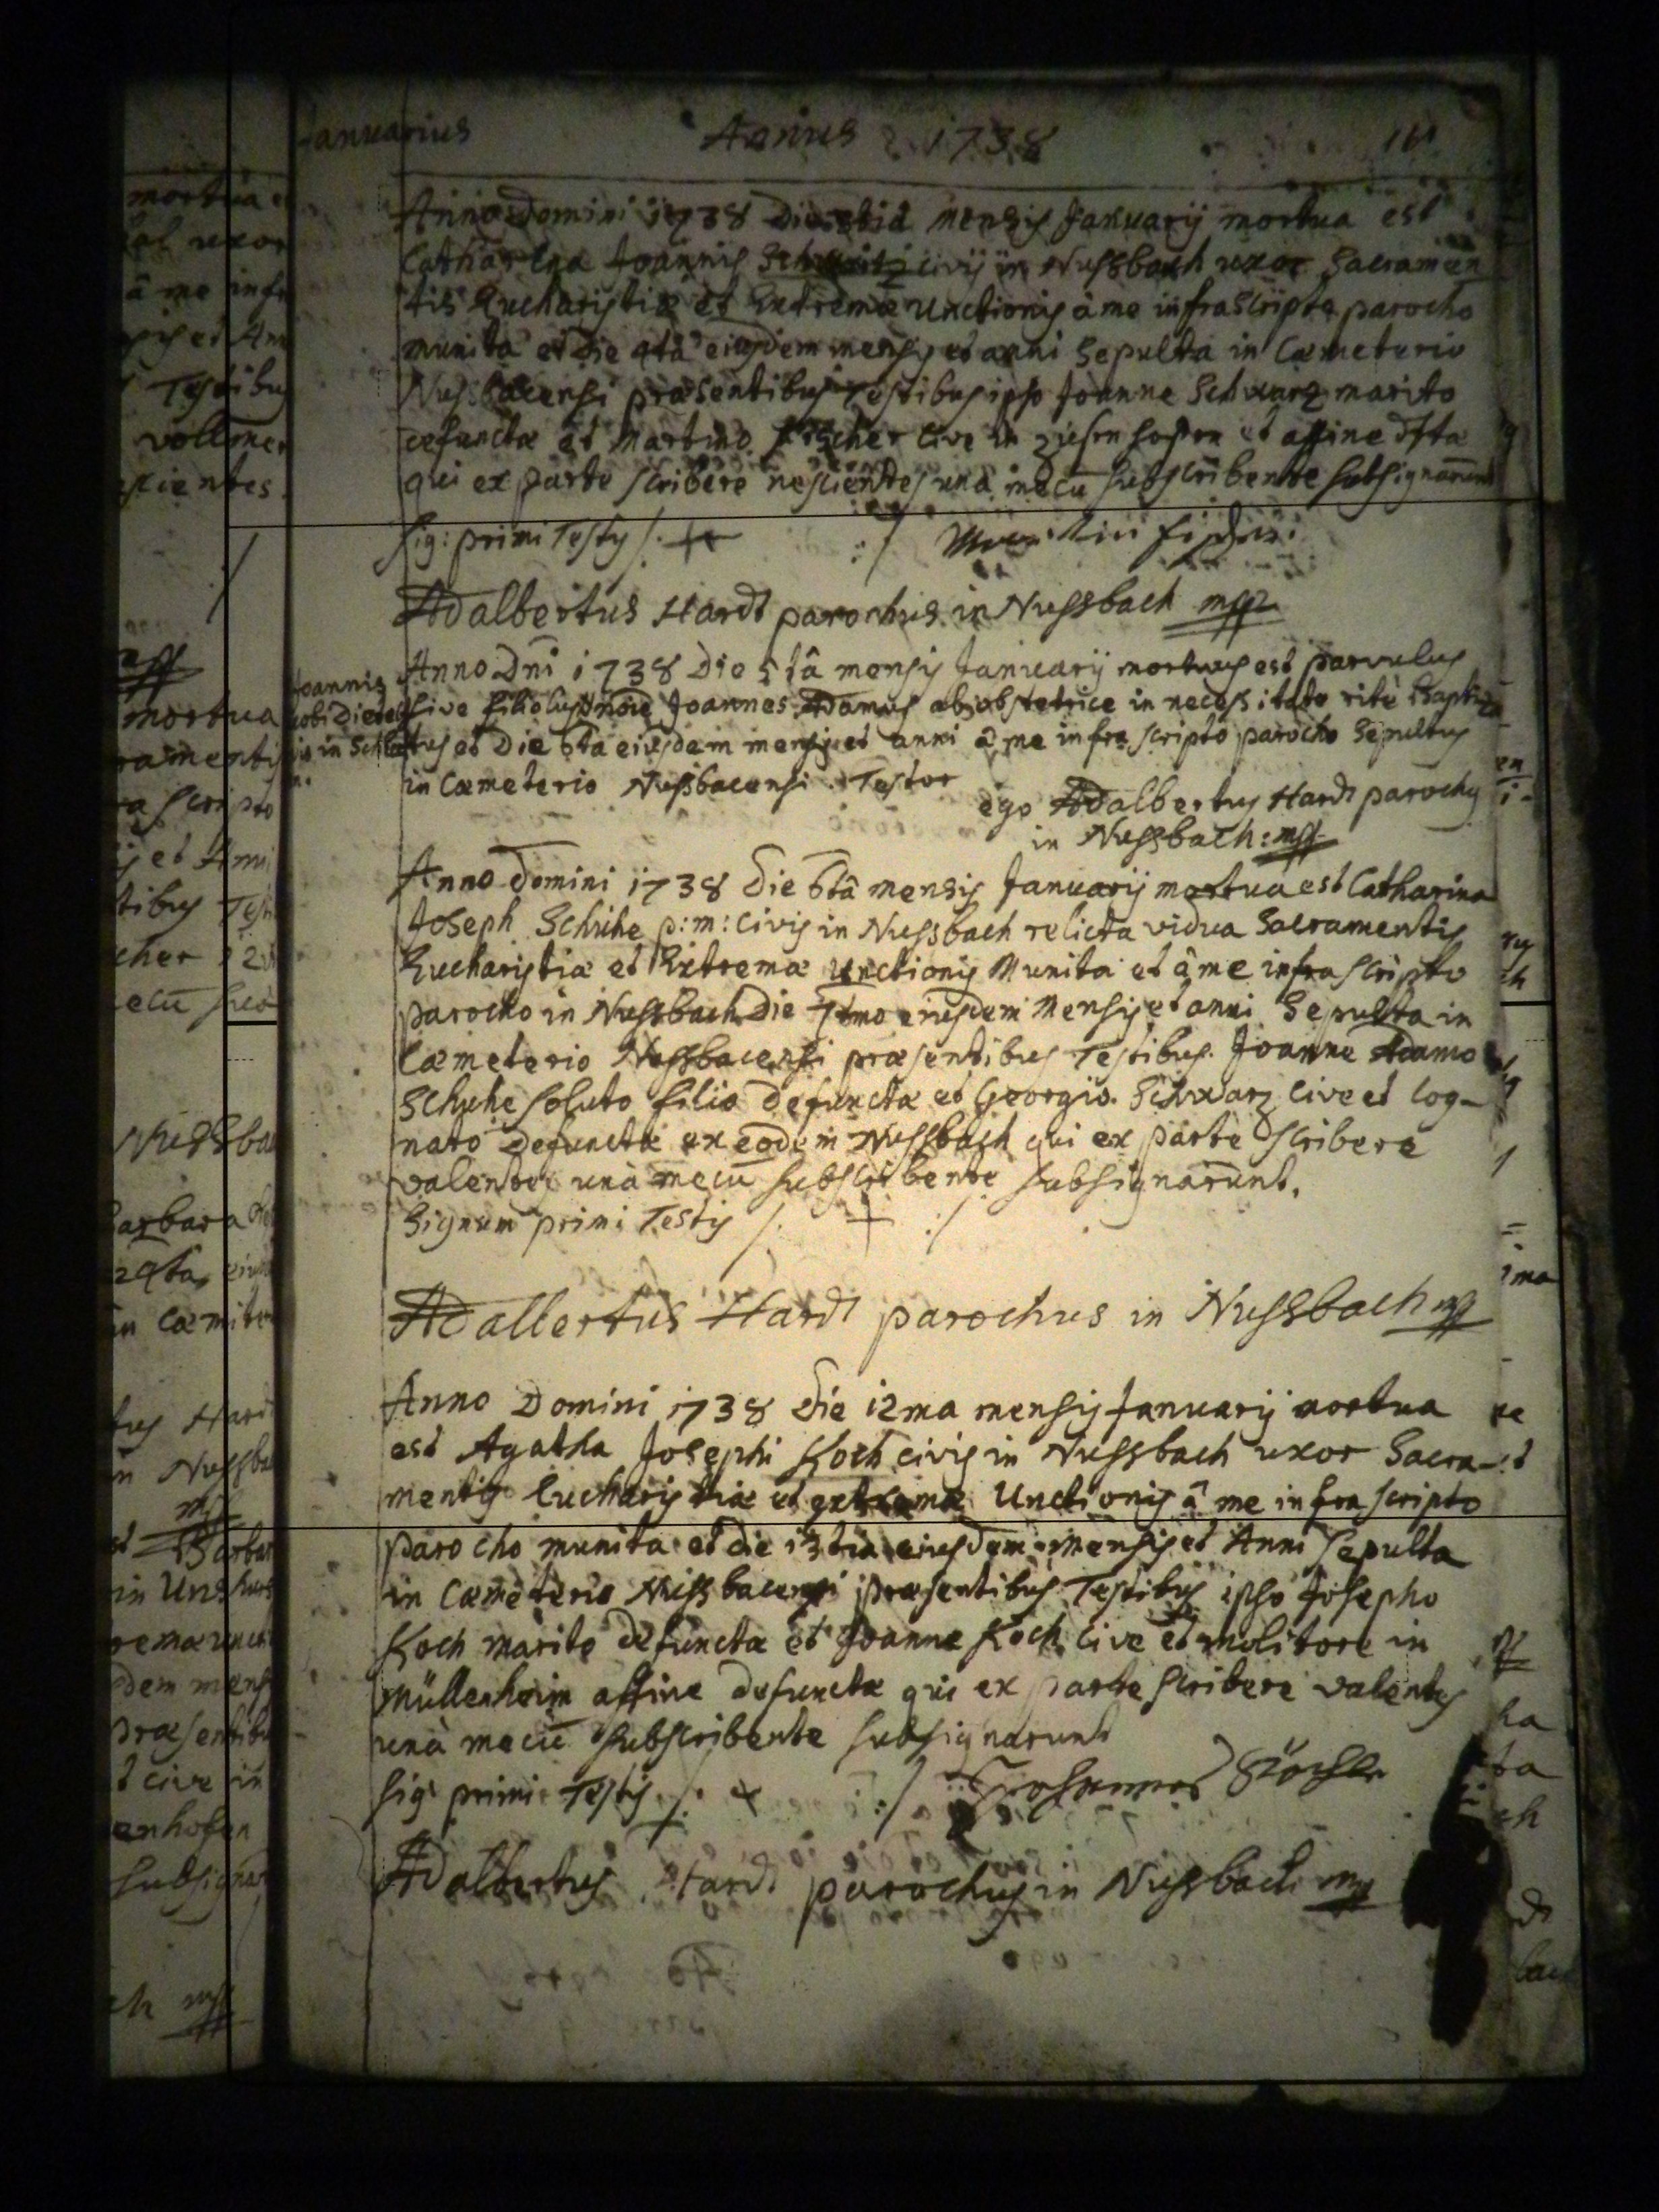 Januarius Annus 1738 161
Anno Domini 1738 Die mensis Januarij mortua est
Catharina Joannis civis in Nussbach uxor Sacramen
tis Eucharistiæ et Extremæ Unctionis à me infrascripto parocho
munita et die 4tâ eiusdem mensis et anni Sepulta in Cœmeterio
Nussbacensi præsentibus Testibus ipso Joanne Schwarz marito
defunctæ et Martino Fischer Cive in et affine
qui ex parte scribere nescientes unà mecū subscribente subsignarunt
sig: primi Testis /: + :/ Martin
Adalbertus Hardt parochus in Nussbach mpp
Anno Dni 1738 Die 5tâ mensis Januarij mortuus est parvulus
Joannis
sive filiolus nōīe Joannes Adamus ab obstetrice in necessitate ritè Baptiza
tus et Die 6ta eiusdem mensis et anni â me infra scripto parocho Sepultus
in Cœmeterio Nussbacensi. Testor
ego Adalbertus Hardt parochus
in Nussbach: mpp
Anno Domini 1738 Die 6tâ mensis Januarij mortua est Catharina
Joseph Schuhe p: m: Civis in Nussbach relicta vidua Sacramentis
Eucharistiæ et Extremæ Unctionis Munita et â me infra scripto
parocho in Nussbach Die 7timo eiusdem Mensis et anni Sepulta in
Cœmeterio Nussbacensi præsentibus Testibus Joanne Adamo
Schuhe soluto filio Defunctæ et Georgio Schwarz Cive et Cog-
nato Defunctæ ex eodem Nussbach qui ex parte Scribere
valentes unà mecū subscribente subsignarunt.
Signum primi Testis /: + :/
Adalbertus Hardt parochus in Nussbach mpp
Anno Domini 1738 Die 12ma mensis Januarij mortua
est Agatha Josephi Koch civis in Nussbach uxor Sacra-
mentis Eucharistiæ et extremæ Unctionis â me infra scripto
parocho munita et die 13tia eiusdem mensis et Anni Sepulta
in Cœmeterio Nussbacensi præsentibus Testibus ipso Josepho
Koch marito defunctæ et Joanne Koch Cive et molitore in
Müllenheim affine defunctæ qui ex parte scribere valentes
unà mecū subscribente subsignarunt
sig: primi Testis /: + :/ Johannes
Adalbertus Hardt parochus in Nussbach mpp